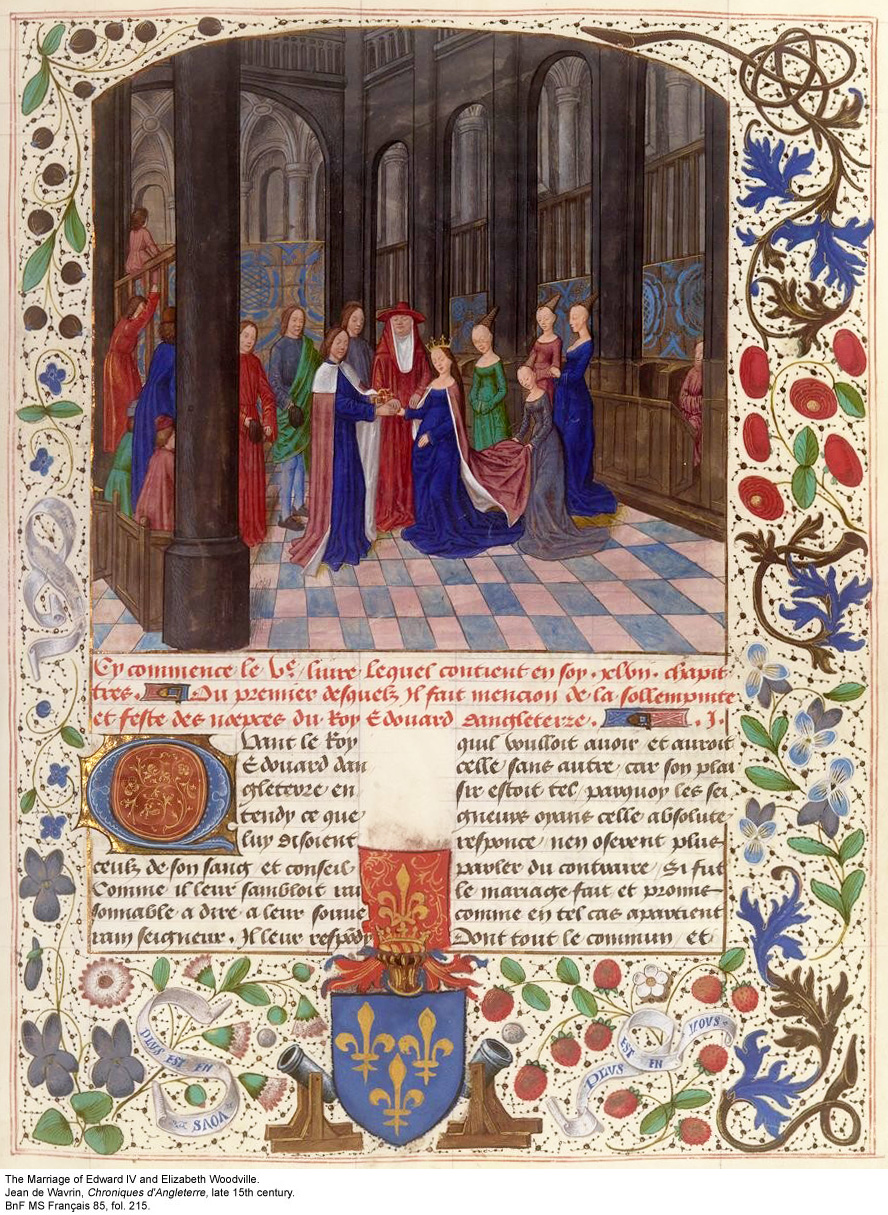 Cy commence le Ve livre Lequel contient en soy. xlvii. chapit
tres. Du premier desquelz Il fait mencion de la sollempnite
et feste des noepces du Roy Edouard dangleterre. .I.
Quant le Roy
Edouard dan
gleterre en
tendy ce que
luy disoient
ceulz de son sang et conseil
Comme il leur sambloit rai
sonnable a dire a leur souue
rain seigneur. Il leur respody
quil voulloit auoir et auroit
celle sans autre car son plai
sir estoit tel, parquoy les sei
gneurs oyans celle absolute
responce nen oserent plus
parler du contraire, Si fut
le mariage fait et promis
comme en tel cas apartient
Dont tout le commun et
PLUS EST EN
VOUS
PLUS EST EN VOUS
The Marriage of Edward IV and Elizabeth Woodville.
Jean de Wavrin, Chroniques d'Angleterre, late 15th century.
BnF MS Français 85, fol. 215.